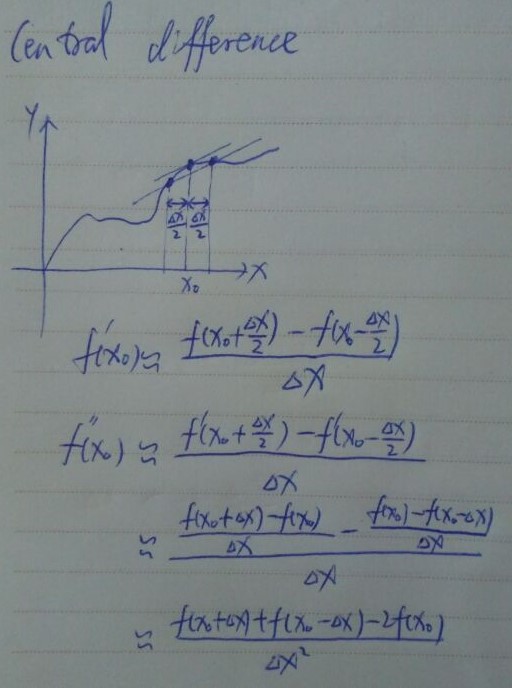 Central difference
Y
Δx/2 Δx/2
x₀ X
f'(x₀) ≈ (f(x₀+Δx/2) - f(x₀-Δx/2))/Δx
f''(x₀) ≈ (f'(x₀+Δx/2) - f'(x₀-Δx/2))/Δx
≈ ((f(x₀+Δx)-f(x₀))/Δx - (f(x₀)-f(x₀-Δx))/Δx)/Δx
≈ (f(x₀+Δx)+f(x₀-Δx)-2f(x₀))/Δx²